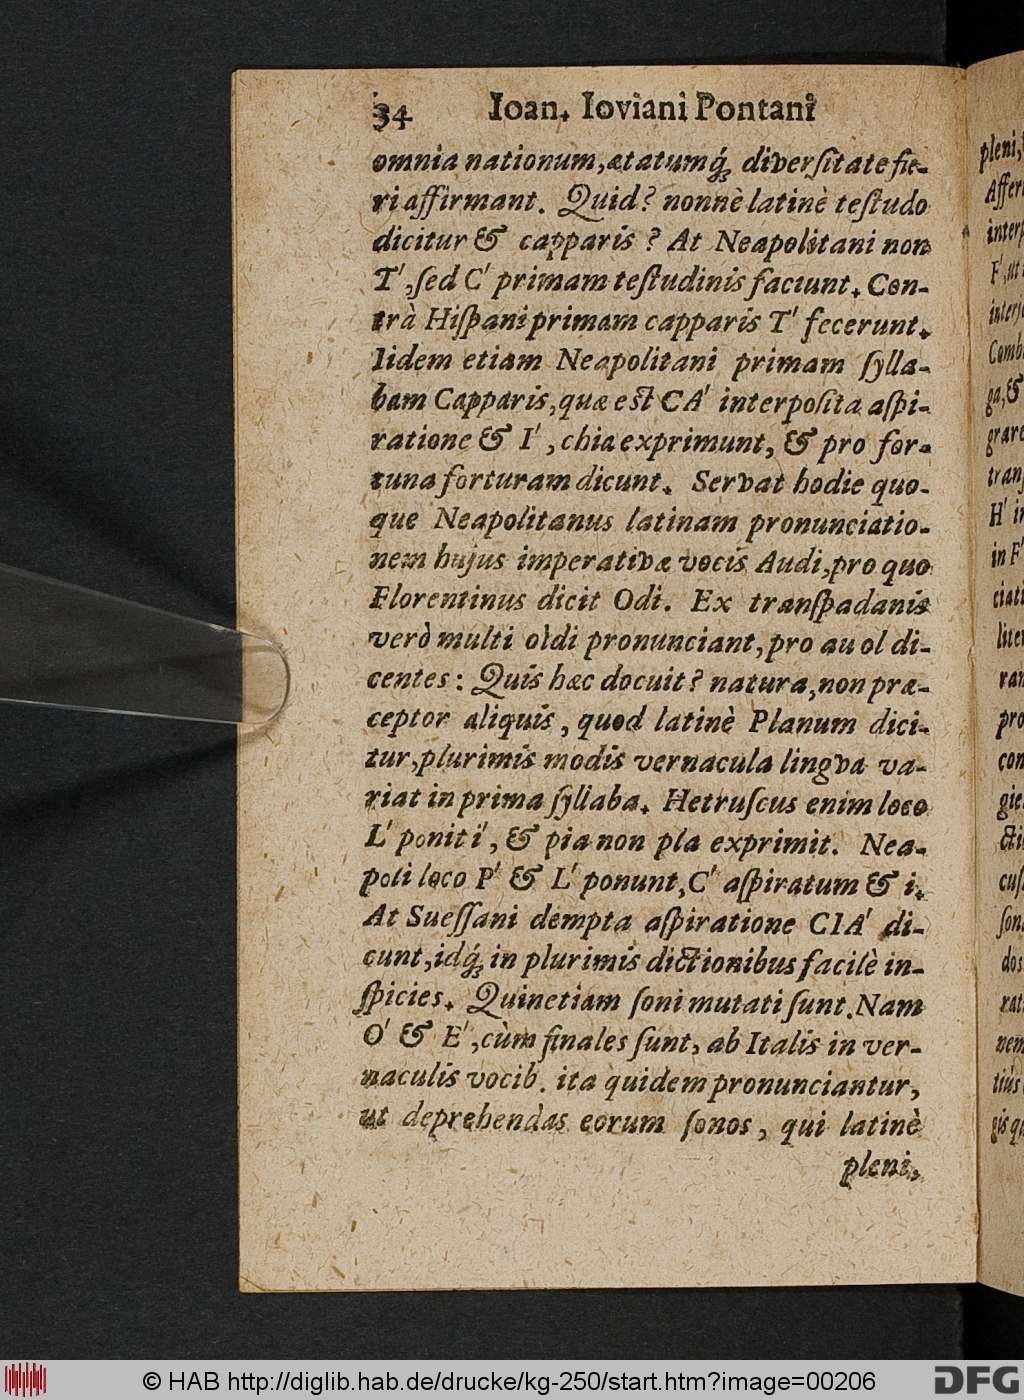 34 Ioan. Ioviani Pontani
omnia nationum, ætatumq́; diverſitate fie-
ri affirmant. Quid? nonnè latinè teſtudo
dicitur & capparis? At Neapolitani non
T', ſed C' primam teſtudinis faciunt. Con-
trà Hiſpani primam capparis T' fecerunt.
Iidem etiam Neapolitani primam ſylla-
bam Capparis, quæ eſt CA' interpoſita aſpi-
ratione & I', chia exprimunt, & pro for-
tuna forturam dicunt. Servat hodie quo-
que Neapolitanus latinam pronunciatio-
nem hujus imperativæ vocis Audi, pro quo
Florentinus dicit Odi. Ex tranſpadanis
verò multi oldi pronunciant, pro au ol di-
centes: Quis hæc docuit? natura, non præ-
ceptor aliquis, quod latinè Planum dici-
tur, plurimis modis vernacula lingva va-
riat in prima ſyllaba. Hetruſcus enim loco
L' ponit i', & pia non pla exprimit. Nea-
poli loco P' & L' ponunt, C' aſpiratum & i.
At Sueſſani dempta aſpiratione CIA' di-
cunt, idq́; in plurimis dictionibus facilè in-
ſpicies. Quinetiam ſoni mutati ſunt. Nam
O' & E', cùm finales ſunt, ab Italis in ver-
naculis vocib. ita quidem pronunciantur,
ut deprehendas eorum ſonos, qui latinè
pleni,
pleni,
Affer
interp
F', ut
interj
Comb
ga, &
grare
tranſ
H' in
in F'
ciati
liter
ran
pro
con
gie
cti
cuſ
ſon
dos
rat
nem
tiùs
gis q
© HAB http://diglib.hab.de/drucke/kg-250/start.htm?image=00206
DFG